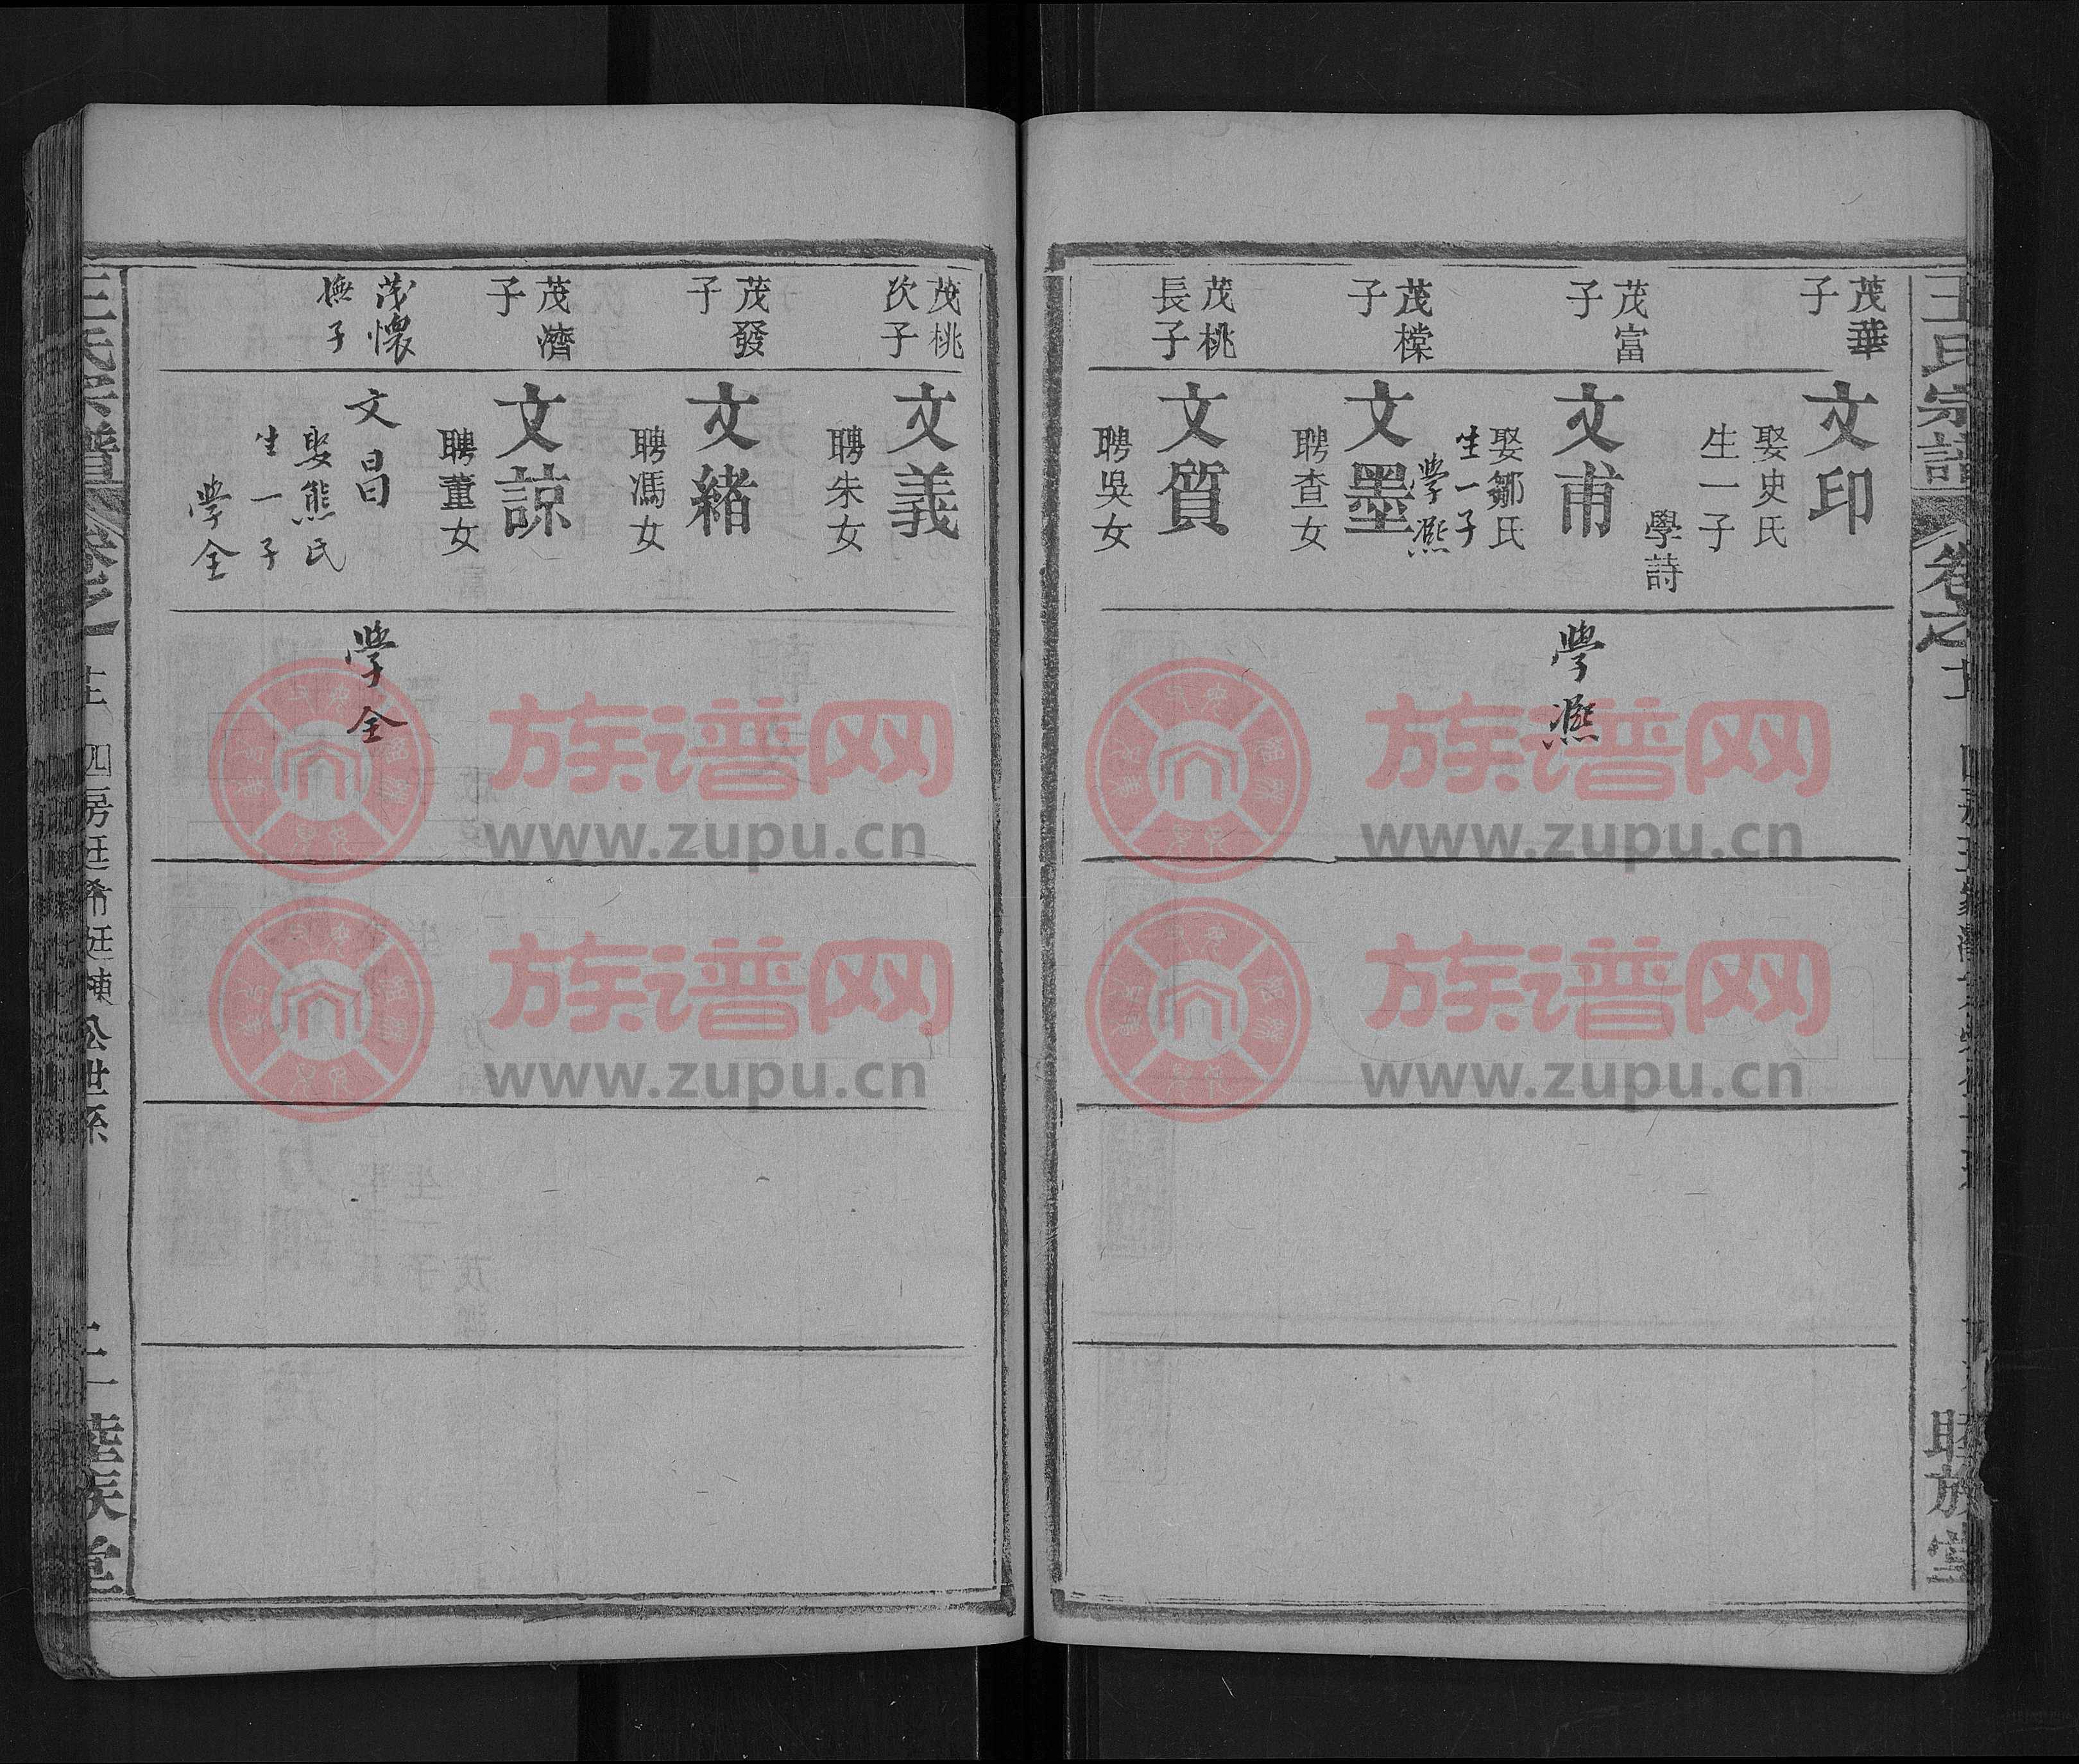 王氏宗譜
卷之
睦族堂
茂華
子
文印
娶史氏
生一子
學詩
茂富
子
文甫
娶鄒氏
生一子
學凞
學凞
茂檪
子
文墨
聘查女
茂桃
長子
文質
聘吳女
茂桃
次子
文義
聘朱女
茂發
子
文緒
聘馮女
茂濟
子
文諒
聘董女
茂懷
撫子
文昌
娶熊氏
生一子
學全
學全
王氏宗譜
卷之
四房廷希廷棟公世系
睦族堂
族谱网
www.zupu.cn
族谱网
www.zupu.cn
族谱网
www.zupu.cn
族谱网
www.zupu.cn